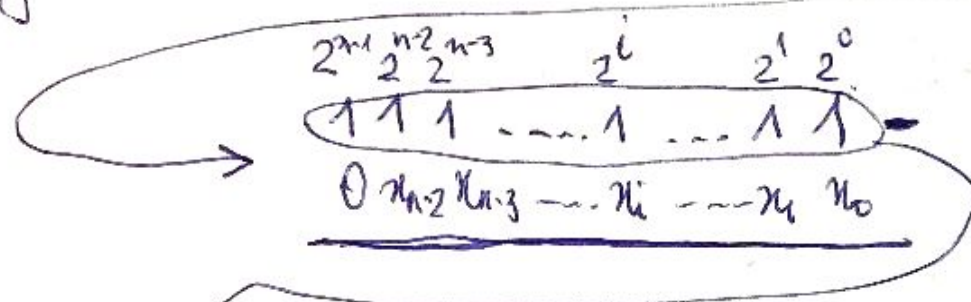 2^{n-1} 2^{n-2} 2^{n-3} 2^i 2^1 2^0
1 1 1 ..... 1 ... 1 1 -
0 x_{n-2} x_{n-3} ---. x_i ----x_1 x_0